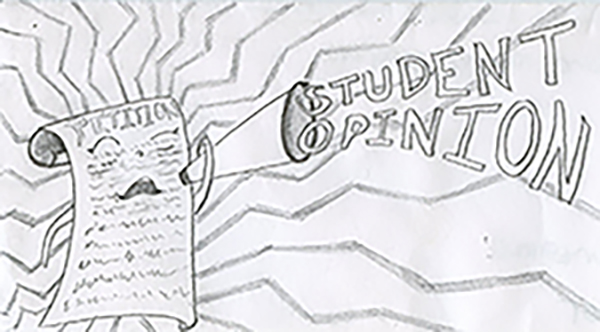 PETITION
STUDENT
OPINION